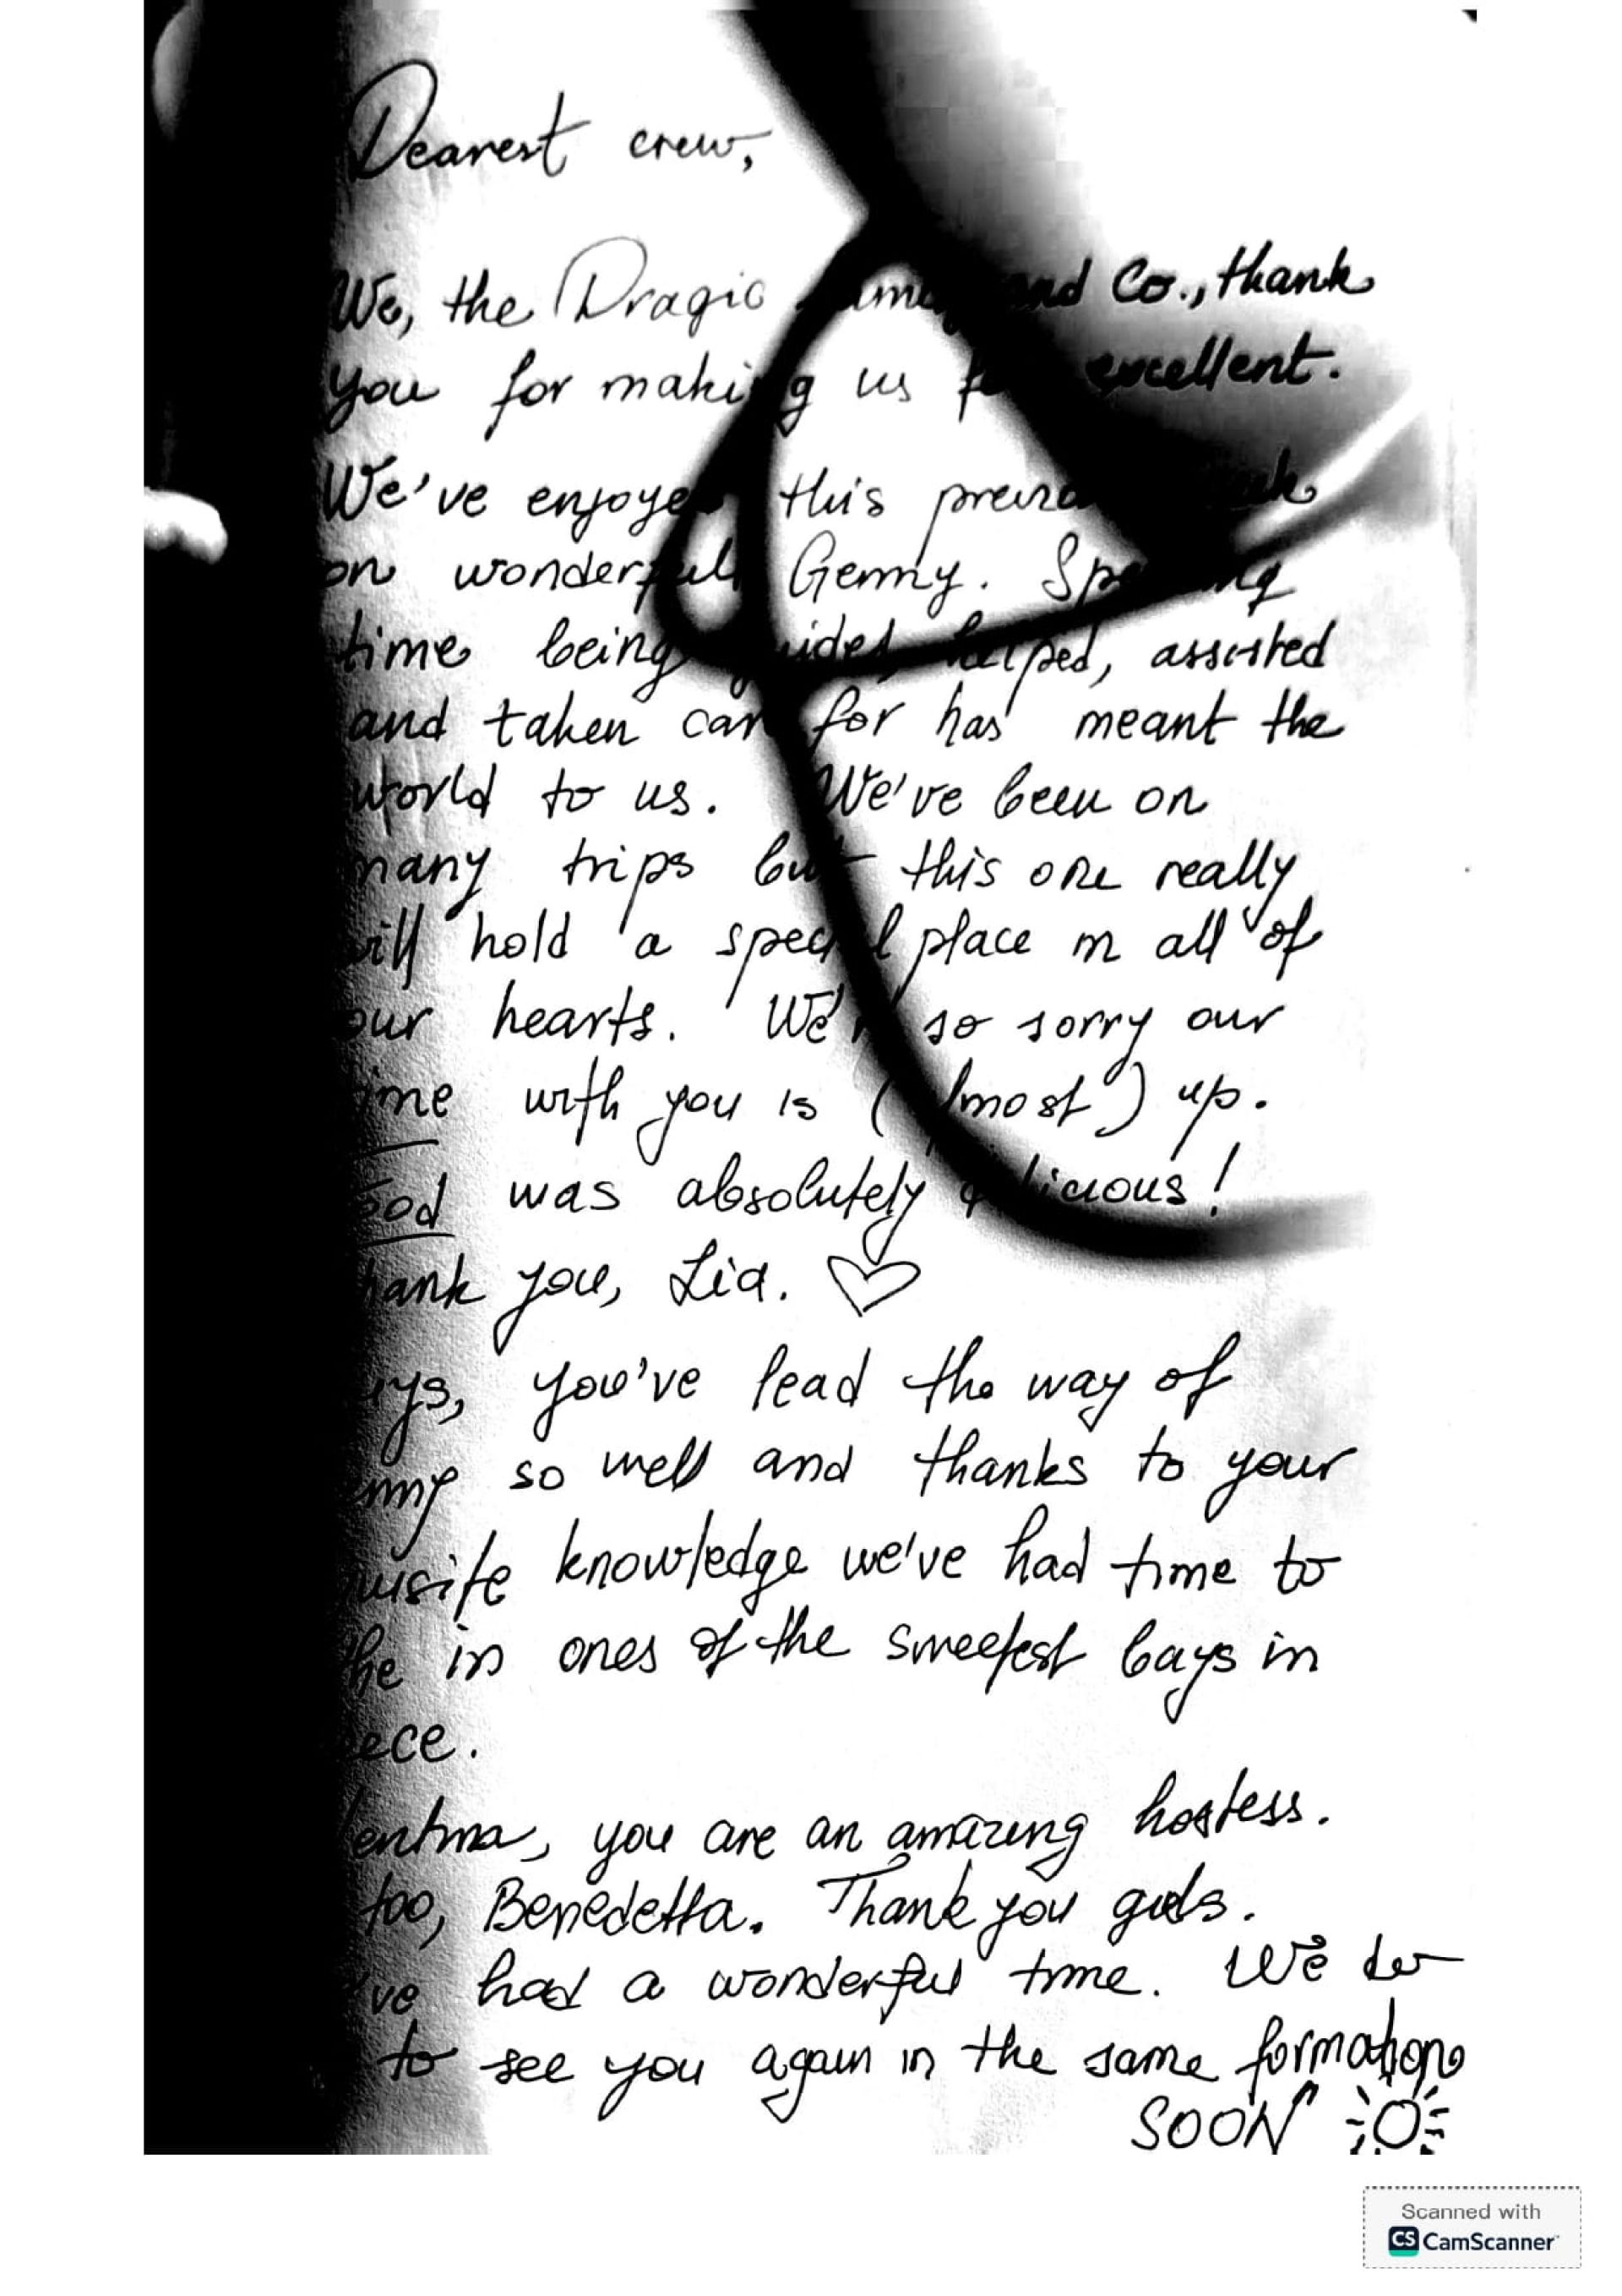 Dearest crew,
We, the Dragic and Co., thank
you for making us excellent.
We've enjoyed this
on wonderful Genny. Spending
time being helped, assisted
and taken care for has meant the
world to us. We've been on
many trips but this one really
will hold a special place in all of
our hearts. We're so sorry our
time with you is (almost) up.
Food was absolutely delicious!
Thank you, Lia. ♡
you've lead the way of
so well and thanks to your
knowledge we've had time to
in ones of the sweetest bays in
you are an amazing hostess.
too, Benedetta. Thank you girls.
had a wonderful time. We
to see you again in the same formation
SOON
Scanned with
CS CamScanner